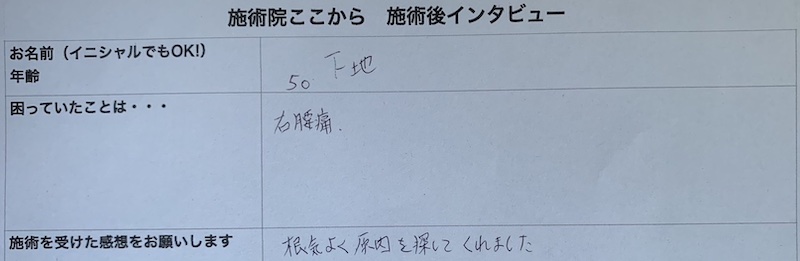 施術院ここから　施術後インタビュー
お名前（イニシャルでもOK!）
年齢
下地
50
困っていたことは・・・
右腰痛.
施術を受けた感想をお願いします
根気よく原因を探してくれました